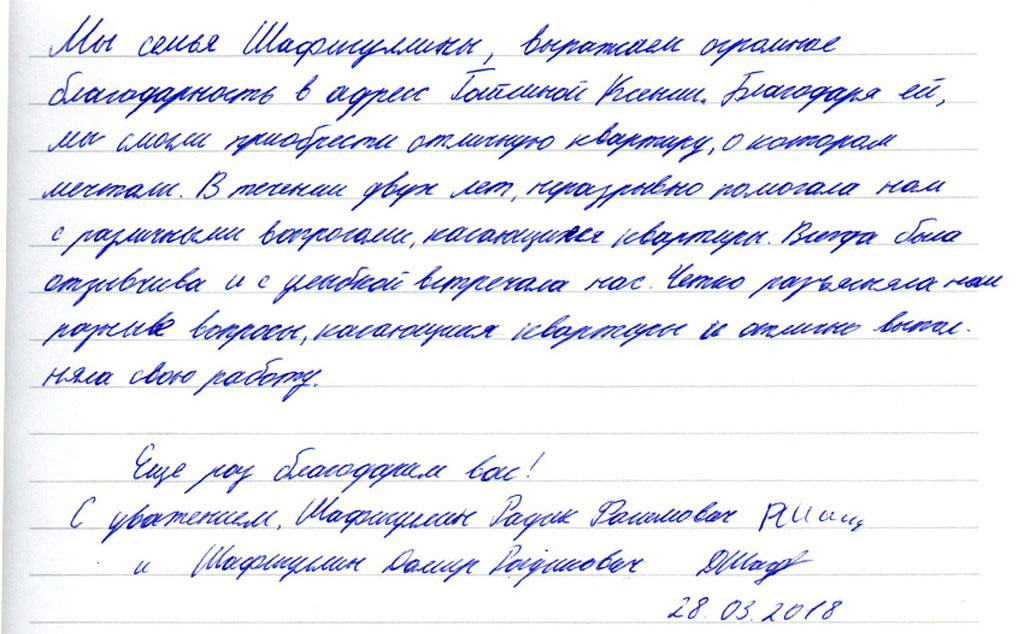 Мы семья Шафигуллины, выражаем огромное
благодарность в адрес Ксении. Благодаря ей,
мы смогли приобрести отличную квартиру, о котором
мечтали. В течении двух лет, неразрывно помогала нам
с различными вопросами, касающихся квартиры. Всегда была
отзывчива и с улыбкой встречала нас. Четко разъясняла нам
разные вопросы, касающихся квартиры и отлично выпол-
няла свою работу.
Еще раз благодарим вас!
С уважением, Шафигуллин Радик
и Шафигуллин Дамир Радикович
28.03.2018